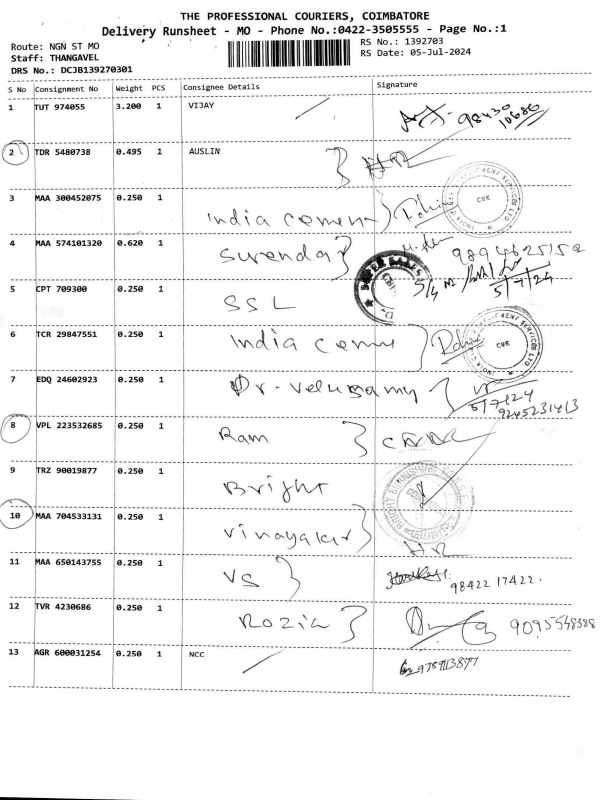 THE PROFESSIONAL COURIERS, COIMBATORE
Delivery Runsheet - MO - Phone No.:0422-3505555 - Page No.:1
Route: NGN ST MO
RS No.: 1392703
Staff: THANGAVEL
RS Date: 05-Jul-2024
DRS No.: DCJB139270301
S No Consignment No Weight PCS Consignee Details Signature
1 TUT 974055 3.200 1 VIJAY 98430 10686
2 TDR 5480738 0.495 1 AUSLIN
3 MAA 300452075 0.250 1 India cemen
4 MAA 574101320 0.620 1 Surenda
5 CPT 709300 0.250 1 SSL 5/7/24
6 TCR 29847551 0.250 1 India ceme
7 EDQ 24602923 0.250 1 Dr. velusamy 5/7/24 9245231413
8 VPL 223532685 0.250 1 Ram
9 TRZ 90019877 0.250 1 Bright
10 MAA 704533131 0.250 1 vinayakar
11 MAA 650143755 0.250 1 VS 98422 17422.
12 TVR 4230686 0.250 1 Rozia
13 AGR 600031254 0.250 1 NCC